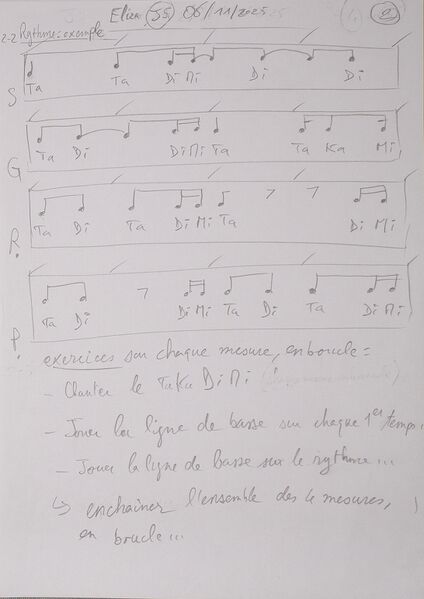 Eliza (S5) 06/11/2025 2
2-2 Rythme: exemple
S Ta Ta Di Mi Di Di
G Ta Di Di Mi Ta Ta Ka Mi
R. Ta Di Ta Di Mi Ta Di Mi
P. Ta Di Di Mi Ta Di Ta Di Mi
exercices sur chaque mesure, en boucle =
- Chanter le TaKa DiMi
- Jouer la ligne de basse sur chaque 1er temps.
- Jouer la ligne de basse sur le rythme...
↳ enchaîner l'ensemble des 4 mesures,
en boucle...